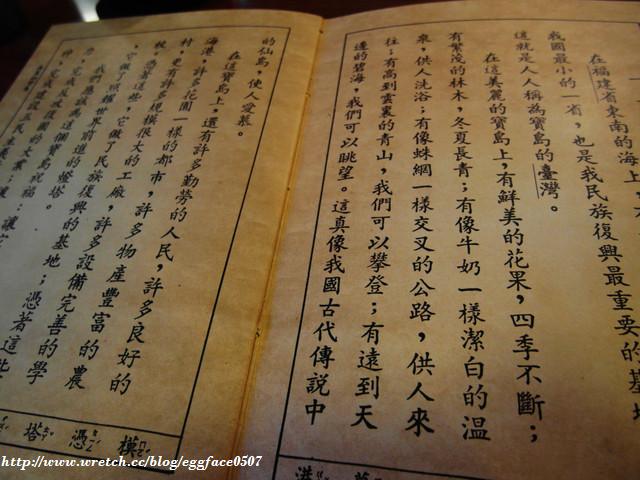 在福建省東南的海上，
我國最小的一省，也是我民族復興最重要的基地
這就是人人稱為寶島的臺灣。
在這美麗的寶島上，有鮮美的花果，四季不斷；
有繁茂的林木，冬夏長青；有像牛奶一樣潔白的溫
來，供人洗浴；有像蛛網一樣交叉的公路，供人來
往；有高到雲裏的青山，我們可以攀登；有遠到天
邊的碧海，我們可以眺望。這真像我國古代傳說中
港
的仙島，使人愛慕。
在這寶島上，還有許多勤勞的人民，許多良好的
海港，許多花園一樣的都市，許多物產豐富的農
村，更有許多規模很大的工廠，許多設備完善的學
校。憑著這些，它做了民族復興的基地；憑著這些
它做了照耀世界前進的燈塔。
我們應該為這個寶島祝福
完成反攻復國的大業；讓
完成建設三民主義
模 憑 塔
http://www.wretch.cc/blog/eggface0507